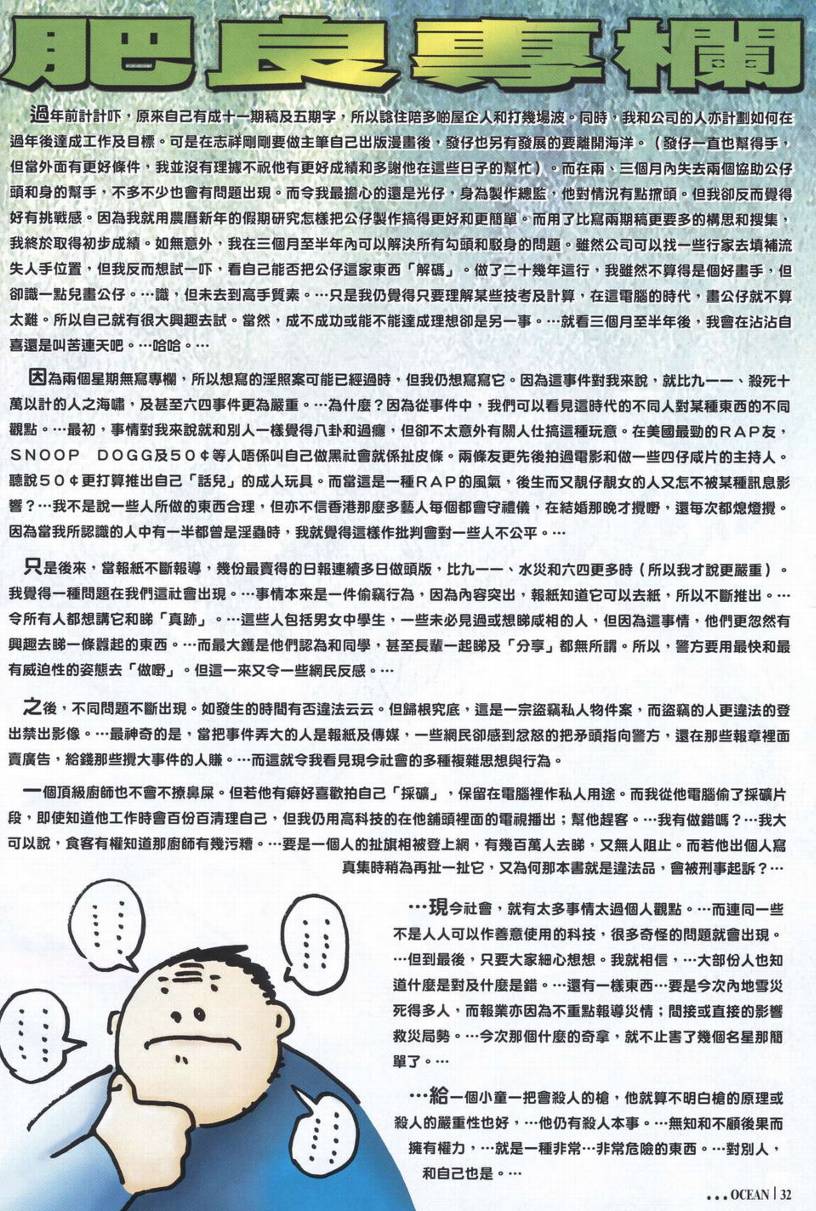 肥良專欄
過年前計計吓，原來自己有成十一期稿及五期字，所以諗住陪多啲屋企人和打幾場波。同時，我和公司的人亦計劃如何在
過年後達成工作及目標。可是在志祥剛剛要做主筆自己出版漫畫後，發仔也另有發展的要離開海洋。（發仔一直也幫得手，
但當外面有更好條件，我並沒有理據不祝他有更好成績和多謝他在這些日子的幫忙）。而在兩、三個月內失去兩個協助公仔
頭和身的幫手，不多不少也會有問題出現。而令我最擔心的還是光仔，身為製作總監，他對情況有點𢱕頭。但我卻反而覺得
好有挑戰感。因為我就用農曆新年的假期研究怎樣把公仔製作搞得更好和更簡單。而用了比寫兩期稿更要多的構思和搜集，
我終於取得初步成績。如無意外，我在三個月至半年內可以解決所有勾頭和駁身的問題。雖然公司可以找一些行家去填補流
失人手位置，但我反而想試一吓，看自己能否把公仔這家東西「解碼」。做了二十幾年這行，我雖然不算得是個好畫手，但
卻識一點兒畫公仔。…識，但未去到高手質素。…只是我仍覺得只要理解某些技考及計算，在這電腦的時代，畫公仔就不算
太難。所以自己就有很大興趣去試。當然，成不成功或能不能達成理想卻是另一事。…就看三個月至半年後，我會在沾沾自
喜還是叫苦連天吧。…哈哈。…
因為兩個星期無寫專欄，所以想寫的淫照案可能已經過時，但我仍想寫寫它。因為這事件對我來說，就比九一一、殺死十
萬以計的人之海嘯，及甚至六四事件更為嚴重。…為什麼？因為從事件中，我們可以看見這時代的不同人對某種東西的不同
觀點。…最初，事情對我來說就和別人一樣覺得八卦和過癮，但卻不太意外有關人仕搞這種玩意。在美國最勁的ＲＡＰ友，
ＳＮＯＯＰ　ＤＯＧＧ及５０￠等人唔係叫自己做黑社會就係扯皮條。兩條友更先後拍過電影和做一些四仔咸片的主持人。
聽說５０￠更打算推出自己「話兒」的成人玩具。而當這是一種ＲＡＰ的風氣，後生而又靚仔靚女的人又怎不被某種訊息影
響？…我不是說一些人所做的東西合理，但亦不信香港那麼多藝人每個都會守禮儀，在結婚那晚才攪嘢，還每次都熄燈攪。
因為當我所認識的人中有一半都曾是淫蟲時，我就覺得這樣作批判會對一些人不公平。…
只是後來，當報紙不斷報導，幾份最賣得的日報連續多日做頭版，比九一一、水災和六四更多時（所以我才說更嚴重）。
我覺得一種問題在我們這社會出現。…事情本來是一件偷竊行為，因為內容突出，報紙知道它可以去紙，所以不斷推出。…
令所有人都想講它和睇「真跡」。…這些人包括男女中學生，一些未必見過或想睇咸相的人，但因為這事情，他們更忽然有
興趣去睇一條囂起的東西。…而最大鑊是他們認為和同學，甚至長輩一起睇及「分享」都無所謂。所以，警方要用最快和最
有威迫性的姿態去「做嘢」。但這一來又令一些網民反感。…
之後，不同問題不斷出現。如發生的時間有否違法云云。但歸根究底，這是一宗盜竊私人物件案，而盜竊的人更違法的登
出禁出影像。…最神奇的是，當把事件弄大的人是報紙及傳媒，一些網民卻感到忿怒的把矛頭指向警方，還在那些報章裡面
賣廣告，給錢那些攪大事件的人賺。…而這就令我看見現今社會的多種複雜思想與行為。
一個頂級廚師也不會不撩鼻屎。但若他有癖好喜歡拍自己「採礦」，保留在電腦裡作私人用途。而我從他電腦偷了採礦片
段，即使知道他工作時會百份百清理自己，但我仍用高科技的在他舖頭裡面的電視播出；幫他趕客。…我有做錯嗎？…我大
可以說，食客有權知道那廚師有幾污糟。…要是一個人的扯旗相被登上網，有幾百萬人去睇，又無人阻止。而若他出個人寫
真集時稍為再扯一扯它，又為何那本書就是違法品，會被刑事起訴？…
…現今社會，就有太多事情太過個人觀點。…而連同一些
不是人人可以作善意使用的科技，很多奇怪的問題就會出現。
…但到最後，只要大家細心想想。我就相信，…大部份人也知
道什麼是對及什麼是錯。…還有一樣東西…要是今次內地雪災
死得多人，而報業亦因為不重點報導災情；間接或直接的影響
救災局勢。…今次那個什麼的奇拿，就不止害了幾個名星那簡
單了。…
…給一個小童一把會殺人的槍，他就算不明白槍的原理或
殺人的嚴重性也好，…他仍有殺人本事。…無知和不顧後果而
擁有權力，…就是一種非常…非常危險的東西。…對別人，
和自己也是。…
...OCEAN | 32